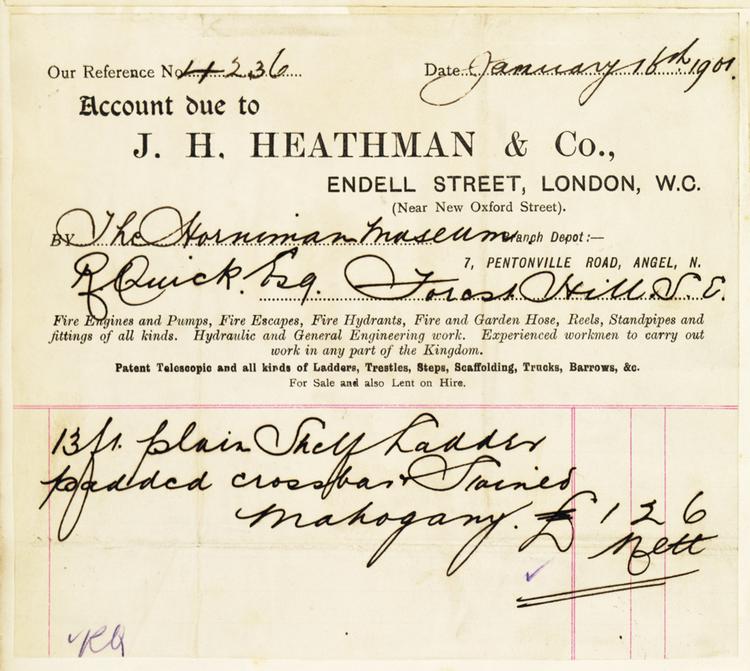 Our Reference No. 4236 Date January 16th 1901.
Account due to
J. H. HEATHMAN & Co.,
ENDELL STREET, LONDON, W.C.
(Near New Oxford Street).
BY The Horniman Museum Branch Depot:—
7, PENTONVILLE ROAD, ANGEL, N.
R Quick. Esq. Forest Hill. S. E.
Fire Engines and Pumps, Fire Escapes, Fire Hydrants, Fire and Garden Hose, Reels, Standpipes and
fittings of all kinds. Hydraulic and General Engineering work. Experienced workmen to carry out
work in any part of the Kingdom.
Patent Telescopic and all kinds of Ladders, Trestles, Steps, Scaffolding, Trucks, Barrows, &c.
For Sale and also Lent on Hire.
13 ft. plain Shelf Ladder
padded crossbar Stained
Mahogany. £ 1 2 6
Nett
RQ